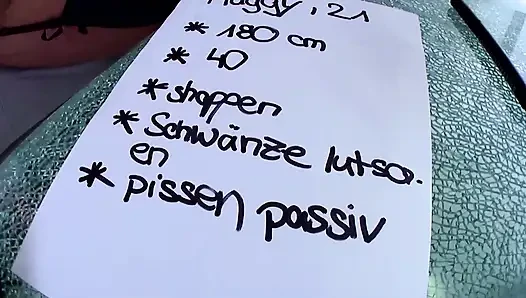 Maggy, 21
* 180 cm
* 40
* shoppen
* Schwänze lutsch-
en
* pissen passiv